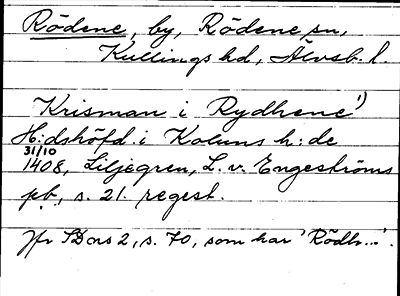 Rödene, by, Rödene sn,
Kullings hd, Älvsb. l.
Krisman i Rydhene 1)
H:dshöfd. i Koluns h:de
31/10
1408, Liljegren, L. v. Engeströms
pb, s. 21. regest.
Jfr SDns 2, s. 70, som har 'Rödh...'.